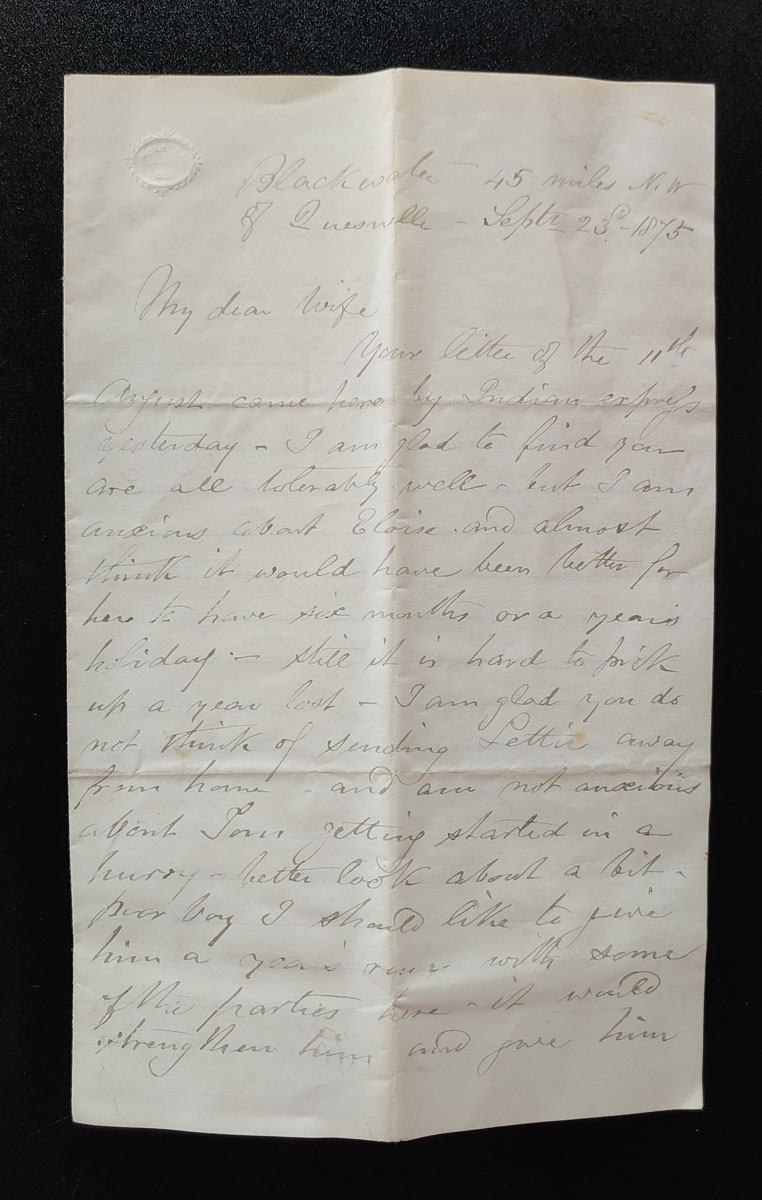 Blackwater 45 miles N.W
of Quesnelle - Septr 23d - 1875
My dear Wife
Your letter of the 11th
August came here by Indian express
yesterday - I am glad to find you
are all tolerably well - but I am
anxious about Eloise and almost
think it would have been better for
her to have six months or a year's
holiday - still it is hard to pick
up a year lost - I am glad you do
not think of sending Lettie away
from home - and am not anxious
about Tom getting started in a
hurry - better look about a bit -
poor boy I should like to give
him a year's run with some
of the parties here - it would
strengthen him and give him